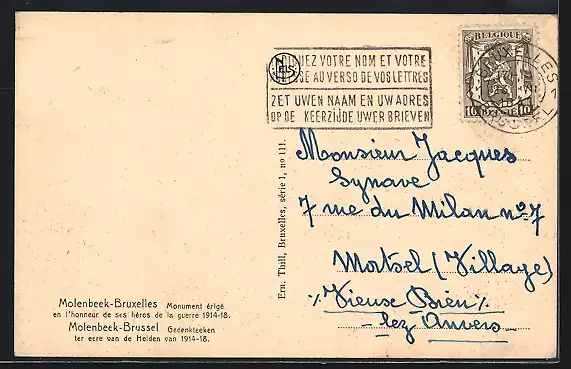 BELGIQUE
10 BELGIE 10
VOTRE NOM ET VOTRE
AU VERSO DE VOS LETTRES
ZET UWEN NAAM EN UW ADRES
OP DE KEERZIJDE UWER BRIEVEN
Monsieur Jacques
Synave
7 rue du Milan no 7
Mortsel (Village)
Vieuse Dieu
-lez Anvers
Ern. Thill, Bruxelles, série 1, no 111.
Molenbeek-Bruxelles Monument érigé
en l'honneur de ses héros de la guerre 1914-18.
Molenbeek-Brussel Gedenkteeken
ter eere van de Helden van 1914-18.